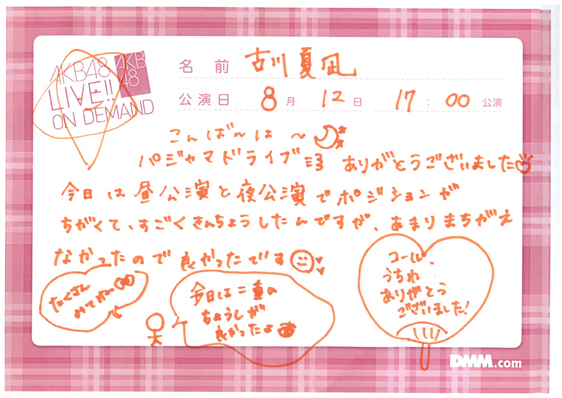 AKB48
LIVE!!
ON DEMAND
AKB
48
名前 古川夏凪
公演日 8月 12日 17:00 公演
こんば〜は〜
パジャマドライブ ありがとうございました
今日は昼公演と夜公演でポジションが
ちがくて、すごくきんちょうしたんですが、あまりまちがえ
なかったので良かったです
たくさん
みてね〜
今日は二重の
ちょうしが
良かったよ
コール、
うちわ
ありがとう
ございました!
DMM.com